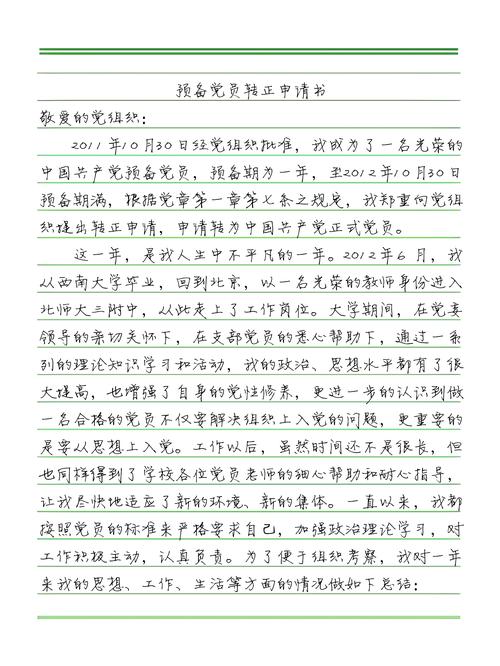 预备党员转正申请书
敬爱的党组织：
2011年10月30日经党组织批准，我成为了一名光荣的
中国共产党预备党员，预备期为一年，至2012年10月30日
预备期满，根据党章第一章第七条之规定，我郑重向党组
织提出转正申请，申请转为中国共产党正式党员。
这一年，是我人生中不平凡的一年。2012年6月，我
从西南大学毕业，回到北京，以一名光荣的教师身份进入
北师大三附中，从此走上了工作岗位。大学期间，在党委
领导的亲切关怀下，在支部党员的悉心帮助下，通过一系
列的理论知识学习和活动，我的政治、思想水平都有了很
大提高，也增强了自身的党性修养，更进一步的认识到做
一名合格的党员不仅要解决组织上入党的问题，更重要的
是要从思想上入党。工作以后，虽然时间还不是很长，但
也同样得到了学校各位党员老师的细心帮助和耐心指导，
让我尽快地适应了新的环境、新的集体。一直以来，我都
按照党员的标准来严格要求自己，加强政治理论学习，对
工作积极主动，认真负责。为了便于组织考察，我对一年
来我的思想、工作、生活等方面的情况做如下总结：